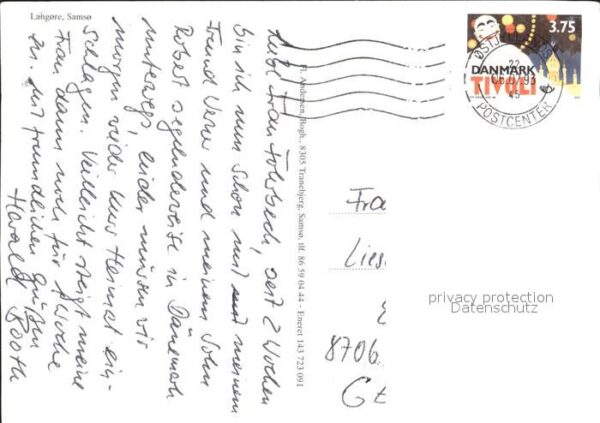 Langøre, Samsø
Liebe Frau Fohsbeck, seit 2 Wochen
bin ich nun schon mit meinem
Freund Verner und meinem Sohn
Robert segelnderweise in Dänemark
unterwegs, leider müssen wir
morgen wieder kurs Heimat ein-
schlagen. Veilleicht steigt meine
Frau dann noch für 1 Woche
zu. Mit freundlichen Grüßen
Harald Rooth
Fl. Andersen, Bogh., 8305 Tranebjerg, Samsø, tlf. 86 59 04 44 - Eneret 143 723 091
3.75
DANMARK
TIVOLI
POSTCENTER
Fra
Lies
8706
GE
privacy protection
Datenschutz